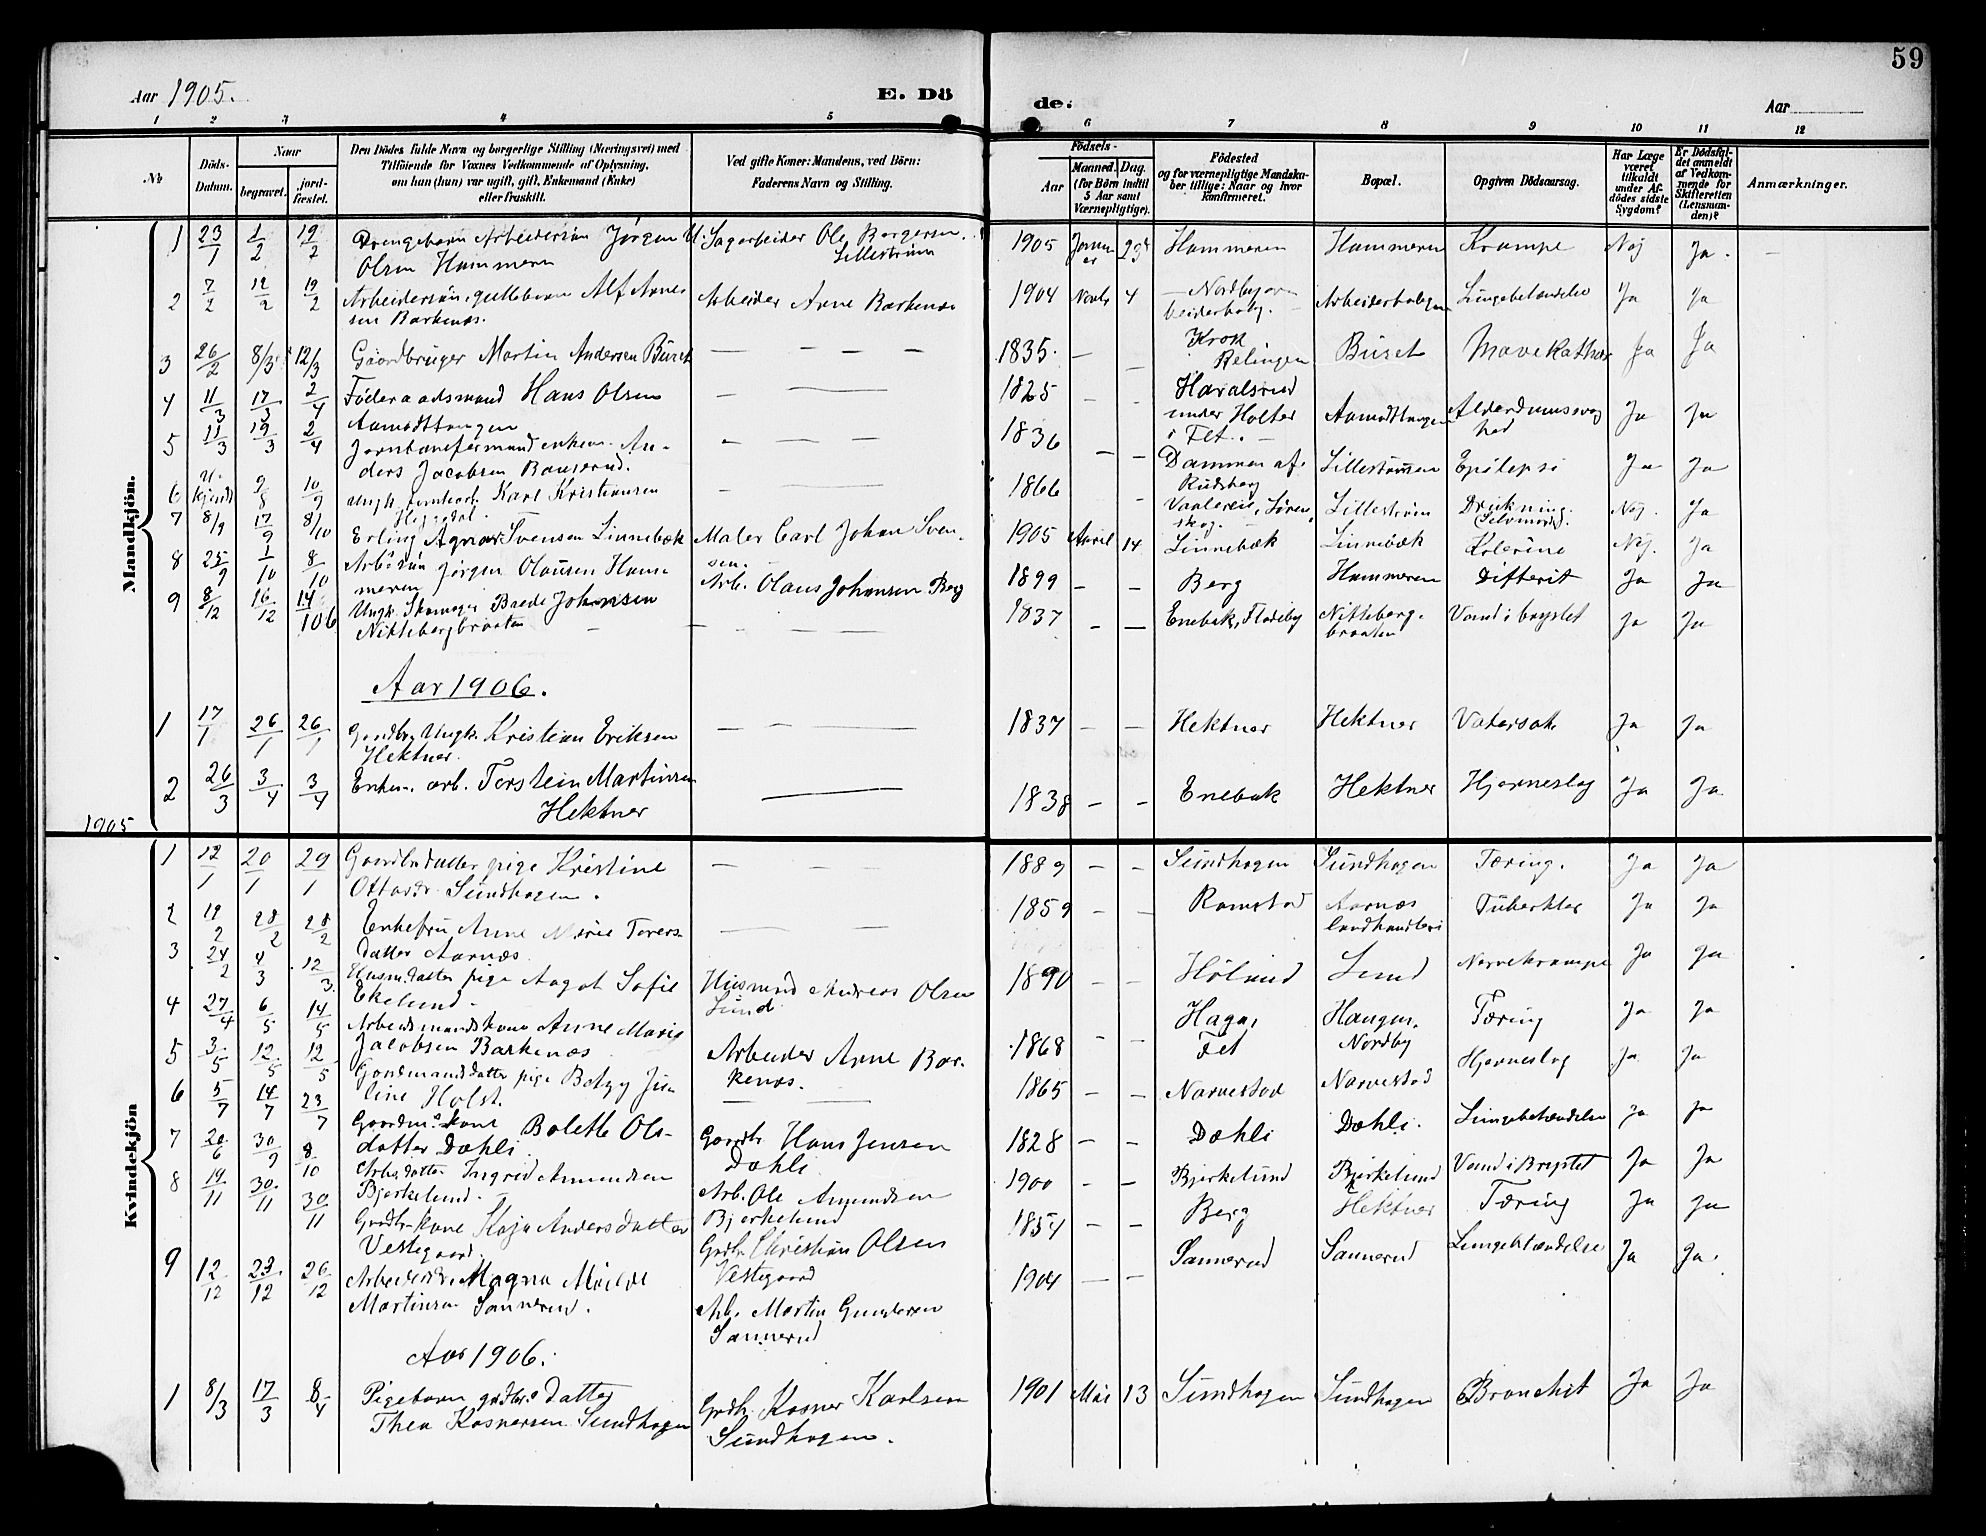 59
Aar 1905.
E. Dö
de.
Aar
1 2 3 4 5 6 7 8 9 10 11 12
№
Döds-Datum.
Naar
begravet.
jord-fæstet.
Den Dödes fulde Navn og borgerlige Stilling (Næringsvei) med
Tilföiende for Voxnes Vedkommende af Oplysning,
om han (hun) var ugift, gift, Enkemand (Enke)
eller fraskilt.
Ved gifte Koner: Mandens, ved Börn:
Faderens Navn og Stilling.
Födsels-
Aar
Maaned. Dag.
(for Börn indtil
5 Aar samt
Værnepligtige).
Födested
og for værnepligtige Mandska-
ber tillige: Naar og hvor
konfirmeret.
Bopæl.
Opgiven Dödsaarsag.
Har Læge
været
tilkaldt
under Af-
dödes sidste
Sygdom?
Er Dödsfal-
det anmeldt
af Vedkom-
mende for
Skifteretten
(Lensman-
den)?
Anmærkninger.
Mandkjön.
1 23/1 1/2 19/2 Drengebarn Arbeidersön Jørgen
Olsen Hammeren
Sagarbeider Ole Borgersen
Lillestrøm
1905 Januar 23 Hammeren Hammeren Krampe Nej Ja.
2 7/2 12/2 19/2 Arbeidersön, guttebarn Alf Arne-
sen Barkenæs.
Arbeider Arne Barkenæs
1904 Novbr 4 Arbeiderbolig Lungebetændelse Ja Ja
3 26/2 8/3 12/3 Gaardbruger Martin Andersen Buset
1835. Krok
Relingen Buset Mavekathar Ja Ja
4 11/3 17/3 2/4 Føderaadsmand Hans Olsen
Aamodttangen
1825 Haralsrud
under Holter
i Fet. Aamodttangen Alderdomssvag
hed Ja Ja
5 11/3 19/3 2/4 Jernbaneformand enkem. An-
ders Jacobsen Bauserud.
1836 Dammen af
Rudsberg Lillestrømmen Epilepsi Ja Ja
6 U-kjendt 9/8 10/9 Ungk. Karl Kristiansen
1866 Lillestrøm Drukning.
(Selvmord). Nej. Ja
7 8/9 17/9 8/10 Erling Agnar Svensen Linnebæk
Maler Carl Johan Sven-
sen.
1905 April 14 Linnebæk Linnebæk Kolerine Nej. Ja
8 25/9 1/10 8/10 Arb.sön Jørgen Olausen Ham-
meren
Arb. Olaus Johansen Berg
1899 Berg Hammeren Difterit Ja Ja
9 8/12 16/12 14/1 06 Ungk. Skomager Brede Johansen
Nittebergbraaten
1837 Enebak, Fladeby Nitteberg-
braaten Vand i brystet Ja Ja
Aar 1906.
1 17/1 26/1 26/1 Gaardbr Ungk. Kristian Eriksen
Hektner.
1837 Hektner Hektner Vatersott Ja Ja
2 26/3 3/4 3/4 Enkem. arb. Torstein Martinsen
Hektner
1838 Enebak Hektner Hjerneslag Ja Ja
1905
Kvindekjön
1 12/1 20/1 29/1 Gaardbrdatter pige Kristine
Ottosdr. Sundhagen.
1889 Sundhagen Sundhagen Tæring. Ja Ja
2 19/2 28/2 28/2 Enkefru Anne Marie Torers-
datter Aarnæs
1859 Ramstad Aarnæs
landhandleri Tuberkler Ja Ja
3 24/2 4/3 12/3 Husm.datter pige Aagot Sofie
Ekelund.
Husmand Andreas Olsen
Lund
1890 Hølund Lund Nervekrampe Ja Ja
4 27/4 6/5 14/5 Arbeidsmandskone Anne Marie
Jacobsen Barkenæs
Arbeider Arne Bar-
kenæs.
1868 Haga,
Fet Haugen,
Nordby Tæring Ja Ja
5 3/5 12/5 12/5 Gaardmandsdatter pige Betzy Ju-
line Holst.
1865 Narvestad Narvestad Hjerneslag Ja Ja
6 5/7 14/7 23/7 Gaardm.s kone Bolette Ols-
datter Dæhli.
Gaardbr. Hans Jensen
Dæhli
1828 Dæhli Dæhli. Lungebetændelse Ja Ja
7 20/6 30/9 8/10 Arb.datter Ingrid Amundsen
Bjerkelund.
Arb. Ole Amundsen
Bjerkelund
1900 Bjerkelund Bjerkelund Vand i Brystet Ja Ja
8 19/11 30/11 30/11 Gaardbr.kone Kaja Andersdatter
Vestegaard.
Grdbr. Christian Olsen
Vestegaard
1854 Berg Hektner Tæring Ja Ja
9 12/12 23/12 26/12 Arbeiderdr. Magna
Martinsen Sannerud.
Arb. Martin Gundersen
Sannerud
1904 Sannerud Sannerud Lungebetændelse Ja Ja.
Aar 1906.
1 8/3 17/3 8/4 Pigebarn grdbr.s Datter
Thea Kasnersen Sundhagen
Grdbr. Kasner Karlsen
Sundhagen.
1901 Mai 13 Sundhagen Sundhagen Bronchit Ja Ja